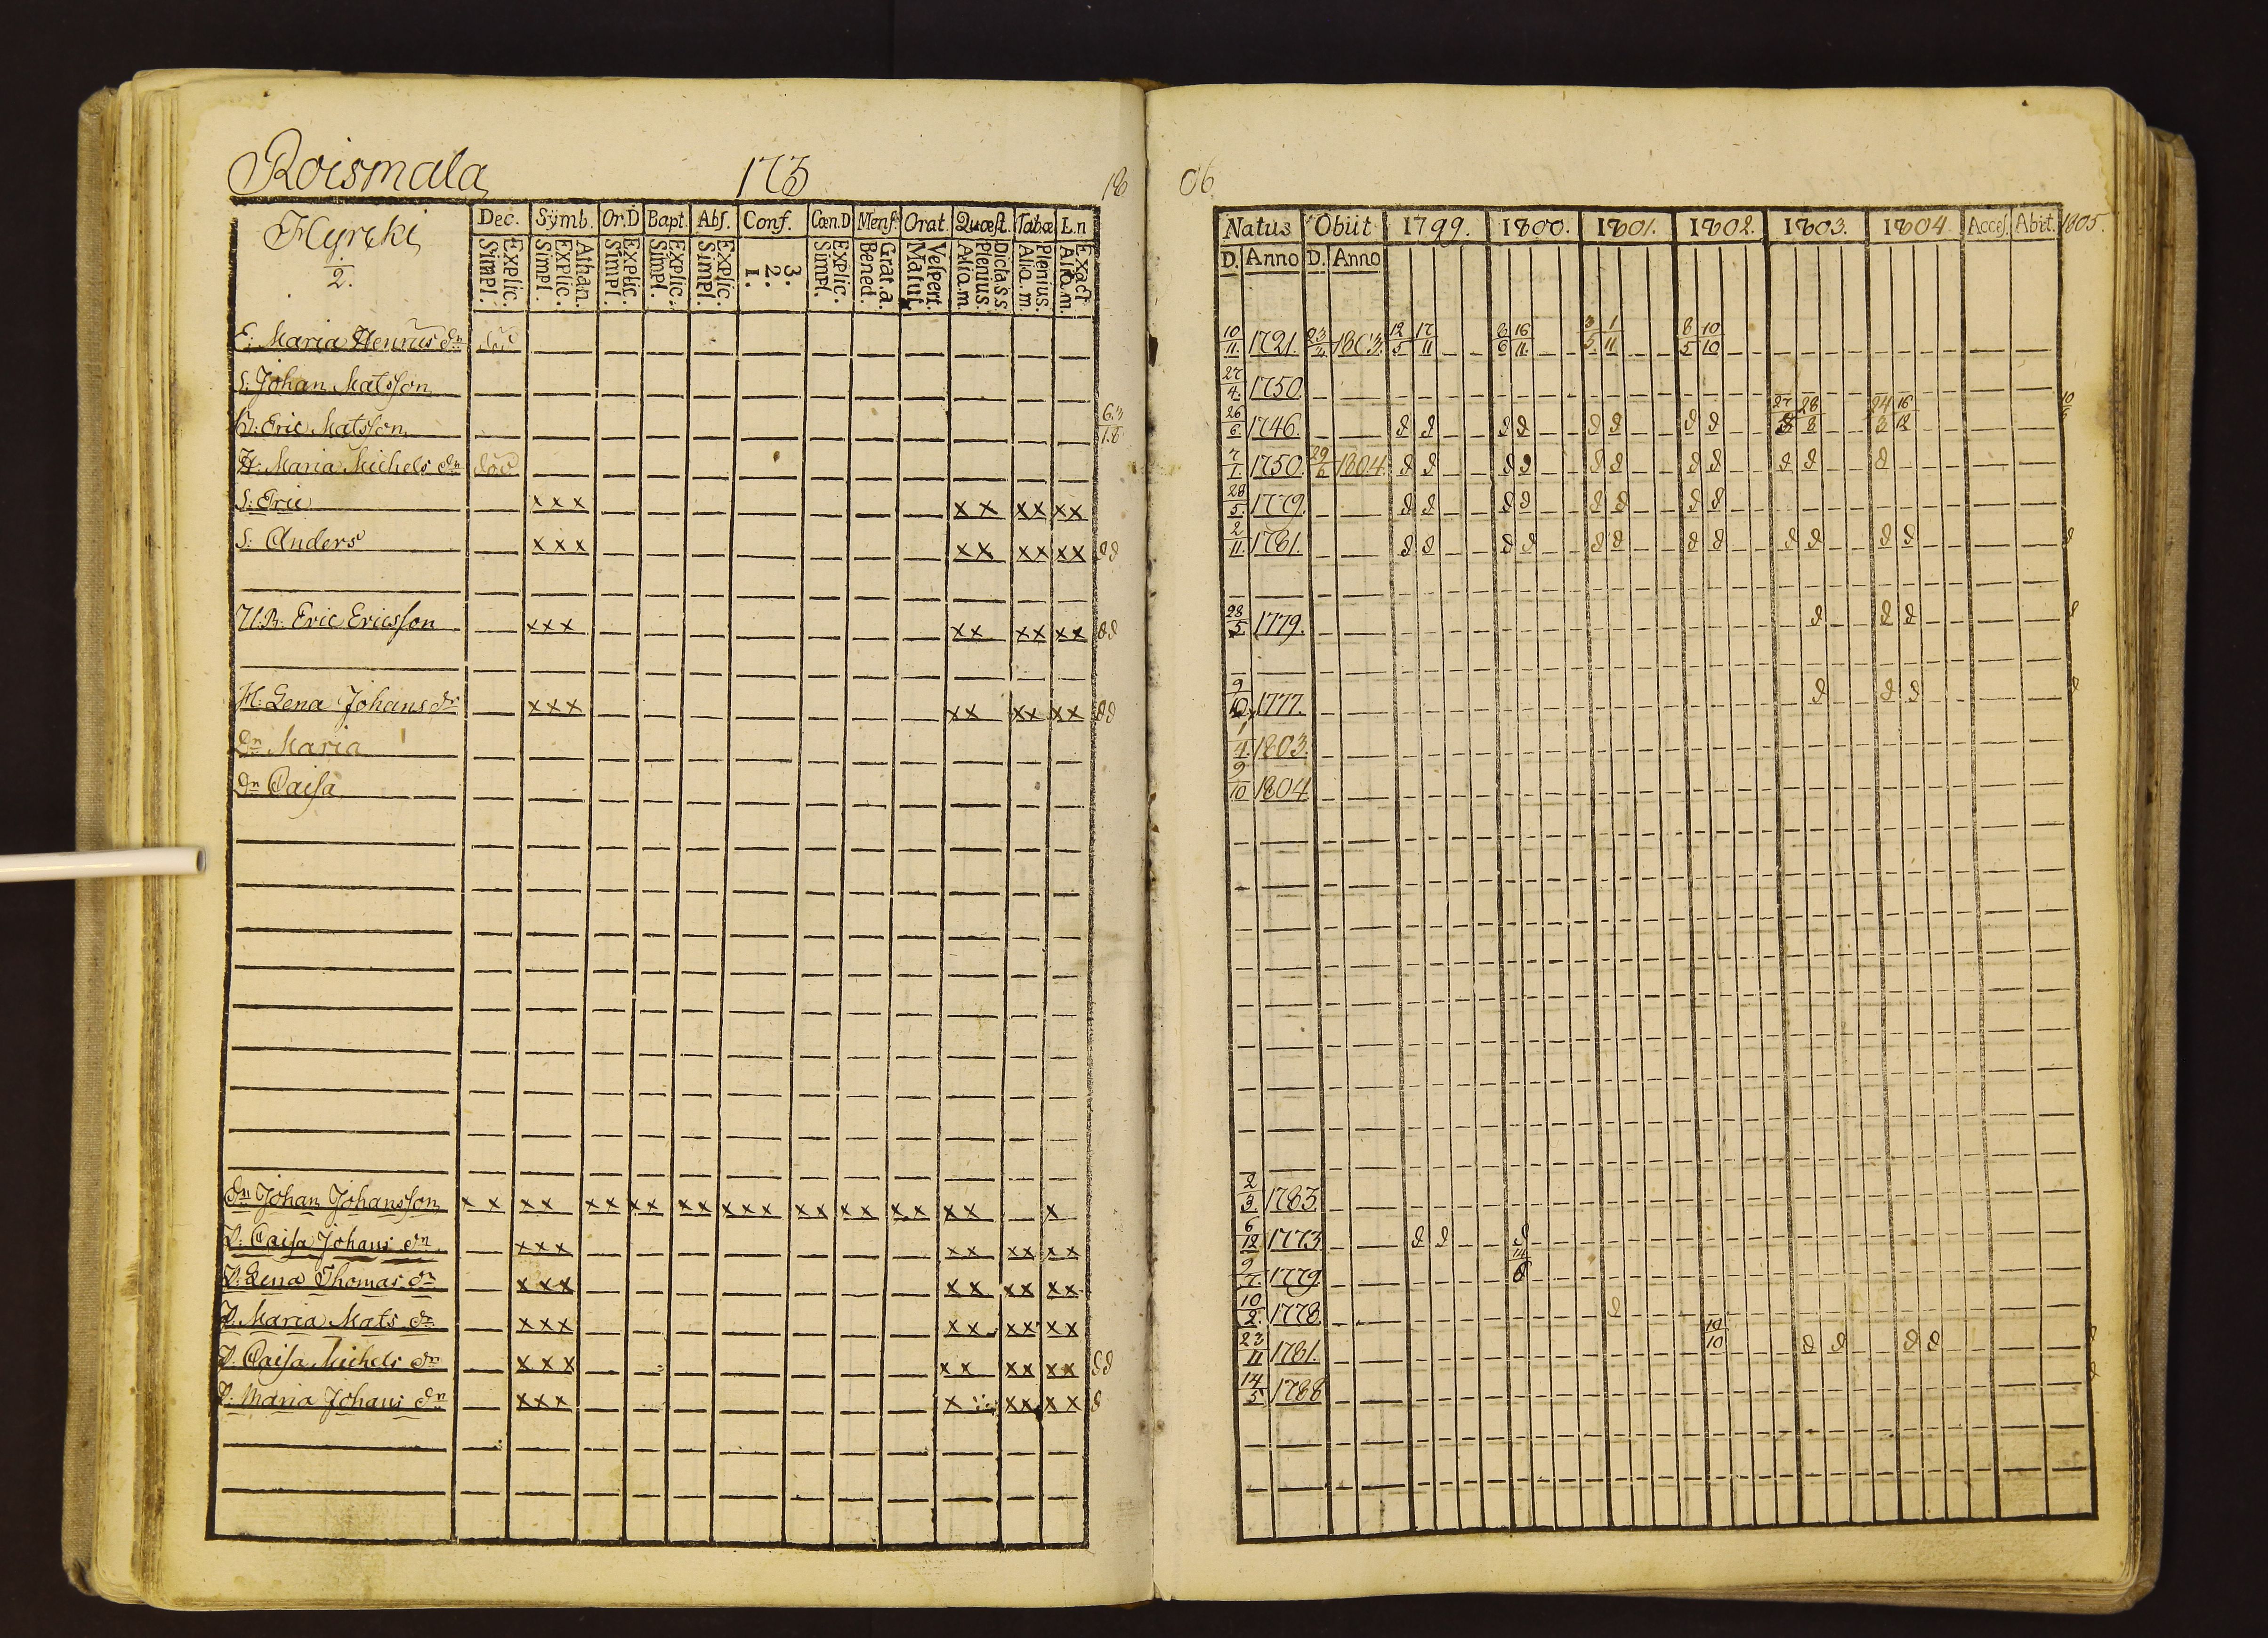 Roismala 175 18 06
Hyrcki Dec. Sÿmb. Or.D Bapt. Abs. Conf. Cœn.D Mens. Orat. Quæst. Tabæ L.n Natus Obiit 1799. 1800. 1801. 1802. 1803. 1804 Acces. Abit. 1805.
2. Explic. Simpl. Athan. Explic. Simpl. Explic. Simpl. Explic. Simpl. Explic. Simpl. 3. 2. 1. Explic. Simpl. Grat.a. Bened. Vespert. Matut. Dicta.s.s. Plenius. Aliq.m. Plenius. Aliq.m. Exact Aliq.m. D. Anno D. Anno
E: Maria Henrics dr död 10/11 1721. 1803. 12/5 17/11 8/6 16/11 3/5 1/11 8/5 10/10
S: Johan Matsson 27/4 1750.
B: Eric Matsson 26/6 1746. d d d d d d d d 27 28/8 24/3 16/12
H: Maria Michels dr död 7/1 1750. 1804. d d d d d d d d d d d
S: Eric x x x x x x x x x 28/5 1779. d d d d d d d d
S: Anders x x x x x x x x x d d 2/11 1781. d d d d d d d d d d d d d
Eric Ericsson x x x x x x x x x d d 28/5 1779. d d d d
H: Lena Johans dr x x x x x x x x x d d 9/10 1777. d d d d
Dr Maria 1/4 1803.
Dr Caisa 9/10 1804.
Johan Johansson x x x x x x x x x x x x x x x x x x x x x x 2/3 1783.
P: Caisa Johans dr x x x x x x x x x 6/12 1773. d d d
P: Lena Thomas dr x x x x x x x x x 9/7 1779.
P. Maria Mats dr x x x x x x x x x 10/2 1778. d
P. Caisa Michels dr x x x x x x x x x d d 23/11 1781. 10 d d d d d
P. Maria Johans dr x x x x x x x x d 14/5 1788 d